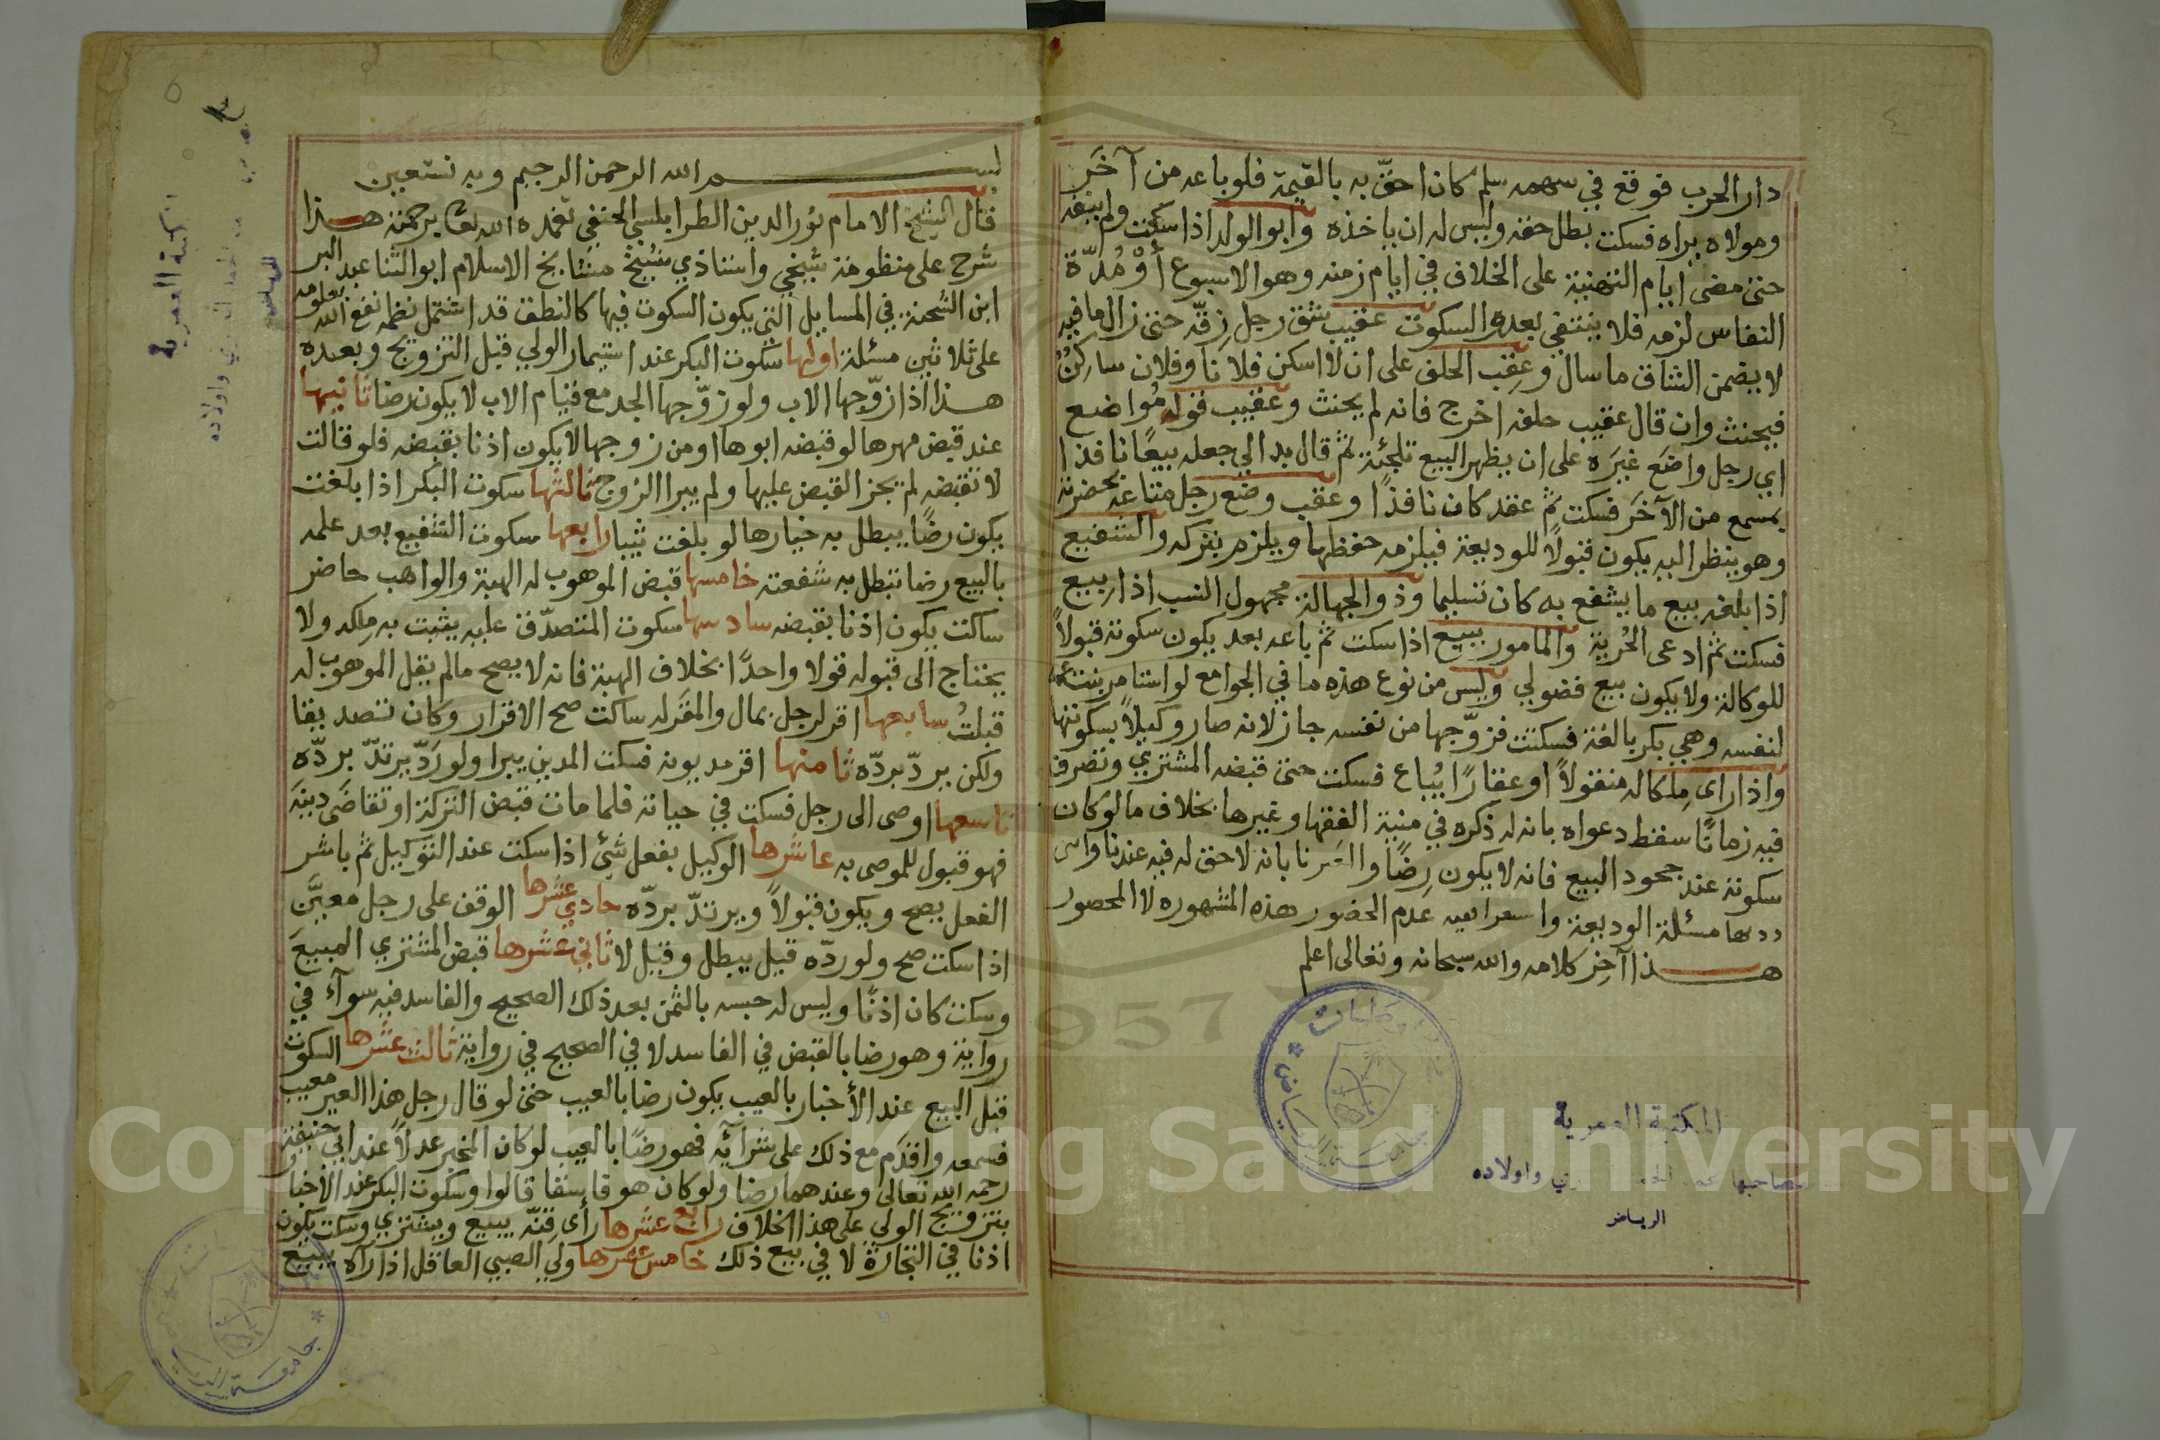 دار الحرب فوقع في سهمه سلم كان احقّ به بالقيمة فلو باعه من آخَر
ومولاه يراه فسكت بطل حقه وليس له ان ياخذه وابو الولد اذا سكت ولم ينفه
حتى مضى ايام التهنية على الخلاف في ايام زمنه وهو الاسبوع أوْ مُدّة
النفاس لزمه فلا ينتفي بعده السكوت عقيب شق رجل زِقّه حتى زال ما فيه
لا يضمن الشاق ما سال وعقب الحلف على ان لا اسكن فلانا وفلان ساكنٌ
فيحنث وان قال عقيب حلفه اخرج فانه لم يحنث وعقيب قوله مُواضع
اي رجل واضَع غيَره على ان يظهر البيع تلجئة ثم قال بدا لي جعله بيعًا نافذا
بمسمع من الآخَر فسكت ثم عقد كان نافذًا وعقب وضع رجل متاعه بحضرته
وهو ينظر اليه يكون قبولًا للوديعة فيلزمه حفظها ويلزم بتركه والشفيع
اذا بلغه بيع ما يشفع به كان تسليما وذو الجهالة مجهول النسب اذا بيع
فسكت ثم ادعى الحُرية والمامور ببيع اذا سكت ثم باعه بعد يكون سكوته قبولًا
للوكالة ولا يكون بيع فضولي وليس من نوع هذه ما في الجوامع لو استامر بنت عمه
لنفسه وهي بكر بالغة فسكتت فزوّجها من نفسه جاز لانه صار وكيلاً بسكوتها
واذا راى مِلكا له منقولاً او عقارًا يُباع فسكت حتى قبضه المشتري وتصرف
فيه زمانًا سقط دعواه بانه له ذكره في منية الفقها وغيرها بخلاف ما لو كان
سكوته عند جحود البيع فانه لا يكون رِضًا بانه لا حق له فيه عندنا
مسئلة الوديعة عدم الحضور هذه المشهوره لا المحصور
هذا آخِر كلامه والله سبحانه وتعالى اعلم
المكتبة العمرية
لصاحبها واولاده
الرياض
بسم الله الرحمن الرحيم وبه نستعين
قال الشيخ الامام نور الدين الطرابلسي الحنفي تغمده الله تعالى برحمته هذا
شرح على منظومة شيخي واستاذي شيخ مشايخ الاسلام ابو الثنا عبد البر
ابن الشحنة في المسايل التي يكون السكوت فيها كالنطق قد اشتمل نظمه نفع الله بعلومه
على ثلاثين مسئلة اولها سكوت البكر عند استيمار الولي قبل التزويج وبعده
هذا اذا زوّجها الاب ولو زوّجها الجد مع قيام الاب لا يكون رضا ثانيها
عند قبض مهرها لو قبضه ابوها او من زوجها لا يكون اذنا بقبضه فلو قالت
لا تقبضه لم يجز القبض عليها ولم يبرا الزوج ثالثها سكوت البكر اذا بلغت
يكون رضًا يبطل به خيارها لو بلغت ثيبا رابعها سكوت الشفيع بعد علمه
بالبيع رضا تبطل به شفعته خامسها قبض الموهوب له الهبة والواهب حاضر
ساكت يكون اذنا بقبضه سادسها سكوت المتصدّق عليه يثبت به مِلكه ولا
يحتاج الى قبوله قولا واحدًا بخلاف الهبة فانه لا يصح مالم يقل الموهوب له
قبلتُ سابعها اقر لرجل بمال والمقَر له ساكت صح الاقرار وكان تصديقا
ولكن يردّ بردّه ثامنها اقر مديونه فسكت المدين يبرا ولو رَدّ يرتدّ بردّه
تاسعها اوصى الى رجل فسكت في حياته فلما مات قبض التركة او تقاضَى دينَه
فهو قبول للموصى به عاشرها الوكيل بفعل شئ اذا سكت عند التوكيل ثم باشر
الفعل يصح ويكون قبولاً ويرتدّ بردّه حادي عشرها الوقف على رجل معيَّن
اذا سكت صح ولو ردّه قيل يبطل وقيل لا ثاني عشرها قبض المشتري المبيعَ
وسكت كان اذنًا وليس له حبسه بالثمن بعد ذلك الصحيح والفاسد فيه سوآء في
رواية وهو رضا بالقبض في الفاسد لا في الصحيح في رواية ثالث عشرها السكوت
قبل البيع عند الأخبار بالعيب يكون رضا بالعيب حتى لو قال رجل هذا العبر معيب
فسمعه واقدم مع ذلك على شرآئه فهو رضًا بالعيب لو كان المخبر عدلاً عند ابي حنيفة
رحمه الله تعالى وعندهما رضا ولو كان هو فاسقا قالوا وسكوت البكر عند الأخبار
بتزويج الولي على هذا الخلاف رابع عشرها رأى قِنّه يبيع ويشتري وسكت يكون
اذنا في التجارة لا في بيع ذلك خامس عشرها ولي الصبي العاقل اذا رآه يبيع
المكتبة العمرية
واولاده
الرياض
Copyright © King Saud University
1957